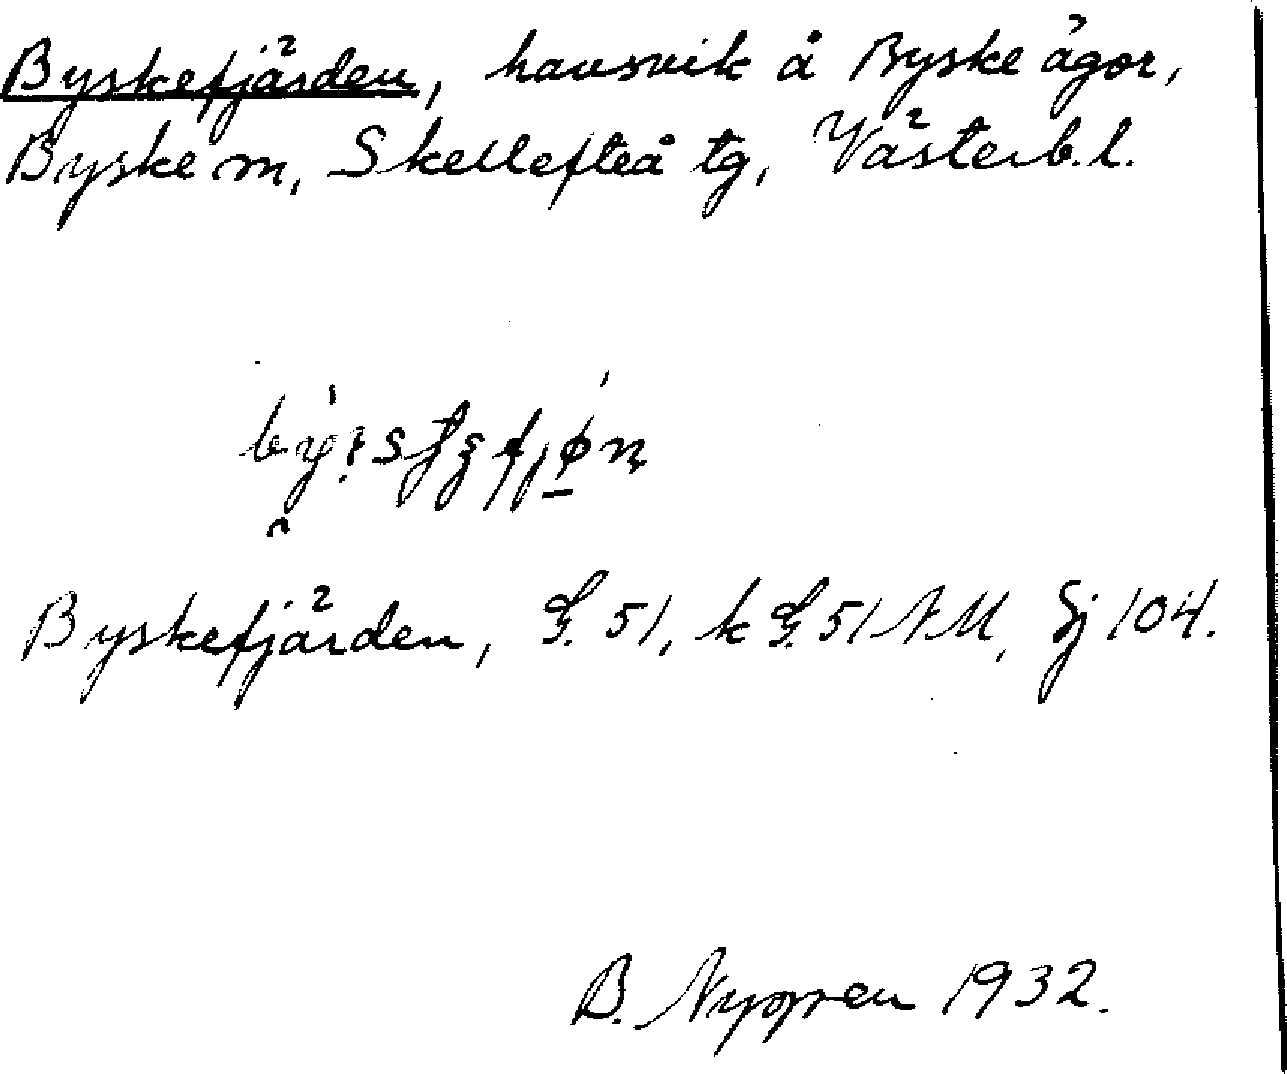 Byskefjärden, havsvik å Byske ägor,
Byske sn, Skellefteå tg, Västerb. l.
Byskefjärden, G. 51, k G. 51 NM, Sj 104.
B. Nygren 1932.